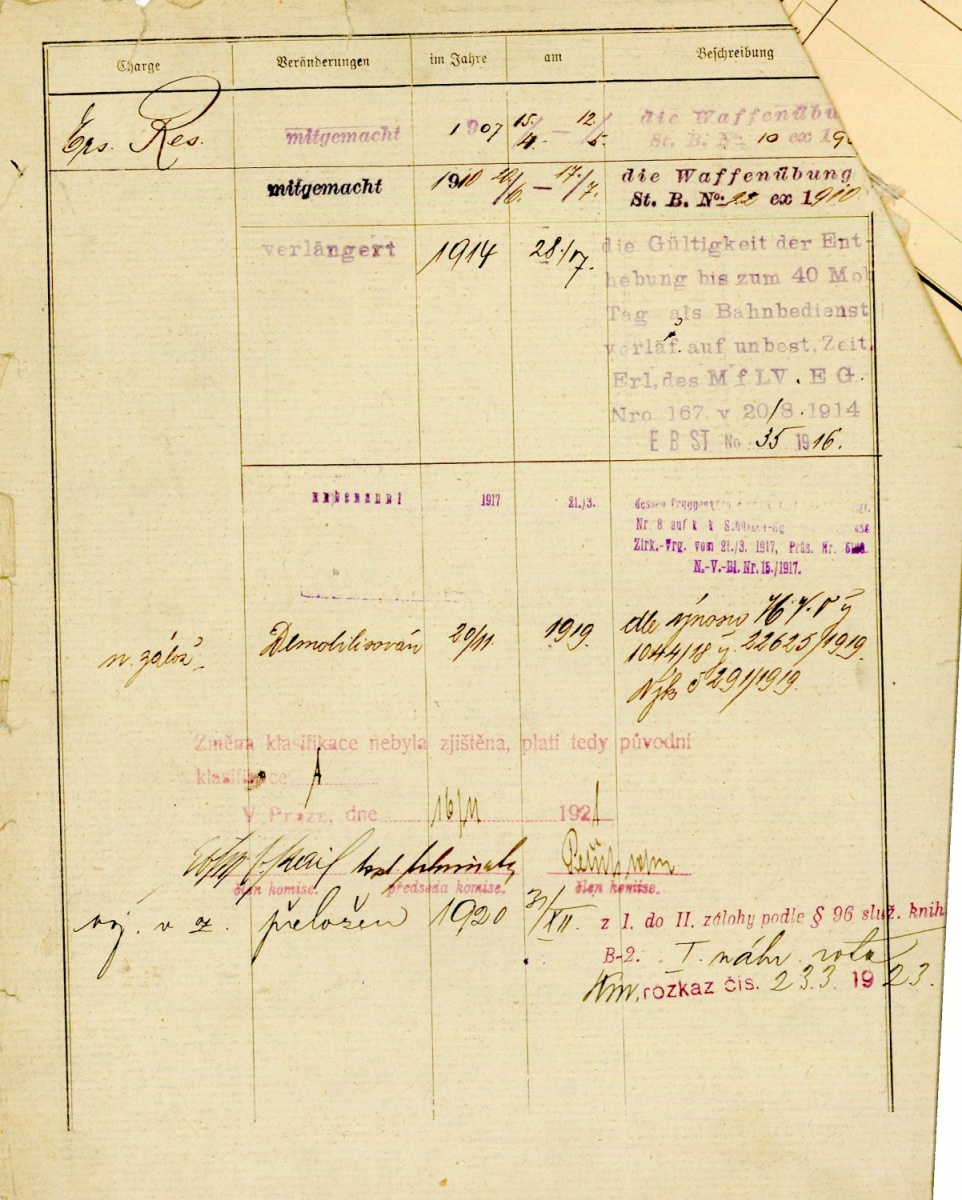 Charge Veränderungen im Jahre am Beschreibung
Ers. Res. mitgemacht 1907 15./4. — 12./5. die Waffenübu
St. B. No. 10 ex 19
mitgemacht 1910 20/6. — 17./7. die Waffenübung
St. B. No. 22 ex 1910
verlängert 1914 28./7. die Gültigkeit der Ent-
hebung bis zum 40 Mob
Tag als Bahnbedienst
vorläf. auf unbest. Zeit.
Erl. des M f LV. E G.
Nro 167 v 20/8. 1914
E B ST No 35 1916.
1917 21./3. dessen
Nr. 8 auf k k
Zirk.-Vrg. vom 21./3. 1917, Präs. Nr.
N.-V.-Bl. Nr. 15./1917.
v. zálož. Demobilisován 20/11. 1919. dle výnosu
1044/18 22625/1919.
291/1919.
Změna klasifikace nebyla zjištěna, platí tedy původní
klasifikace A
V Praze, dne 16/11 1921
člen komise. předseda komise. člen komise.
voj. v z. přeložen 1920 31/XII. z I. do II. zálohy podle § 96 služ. knih
B-2. I. náhr. rota
rozkaz čís. 233. 1923.